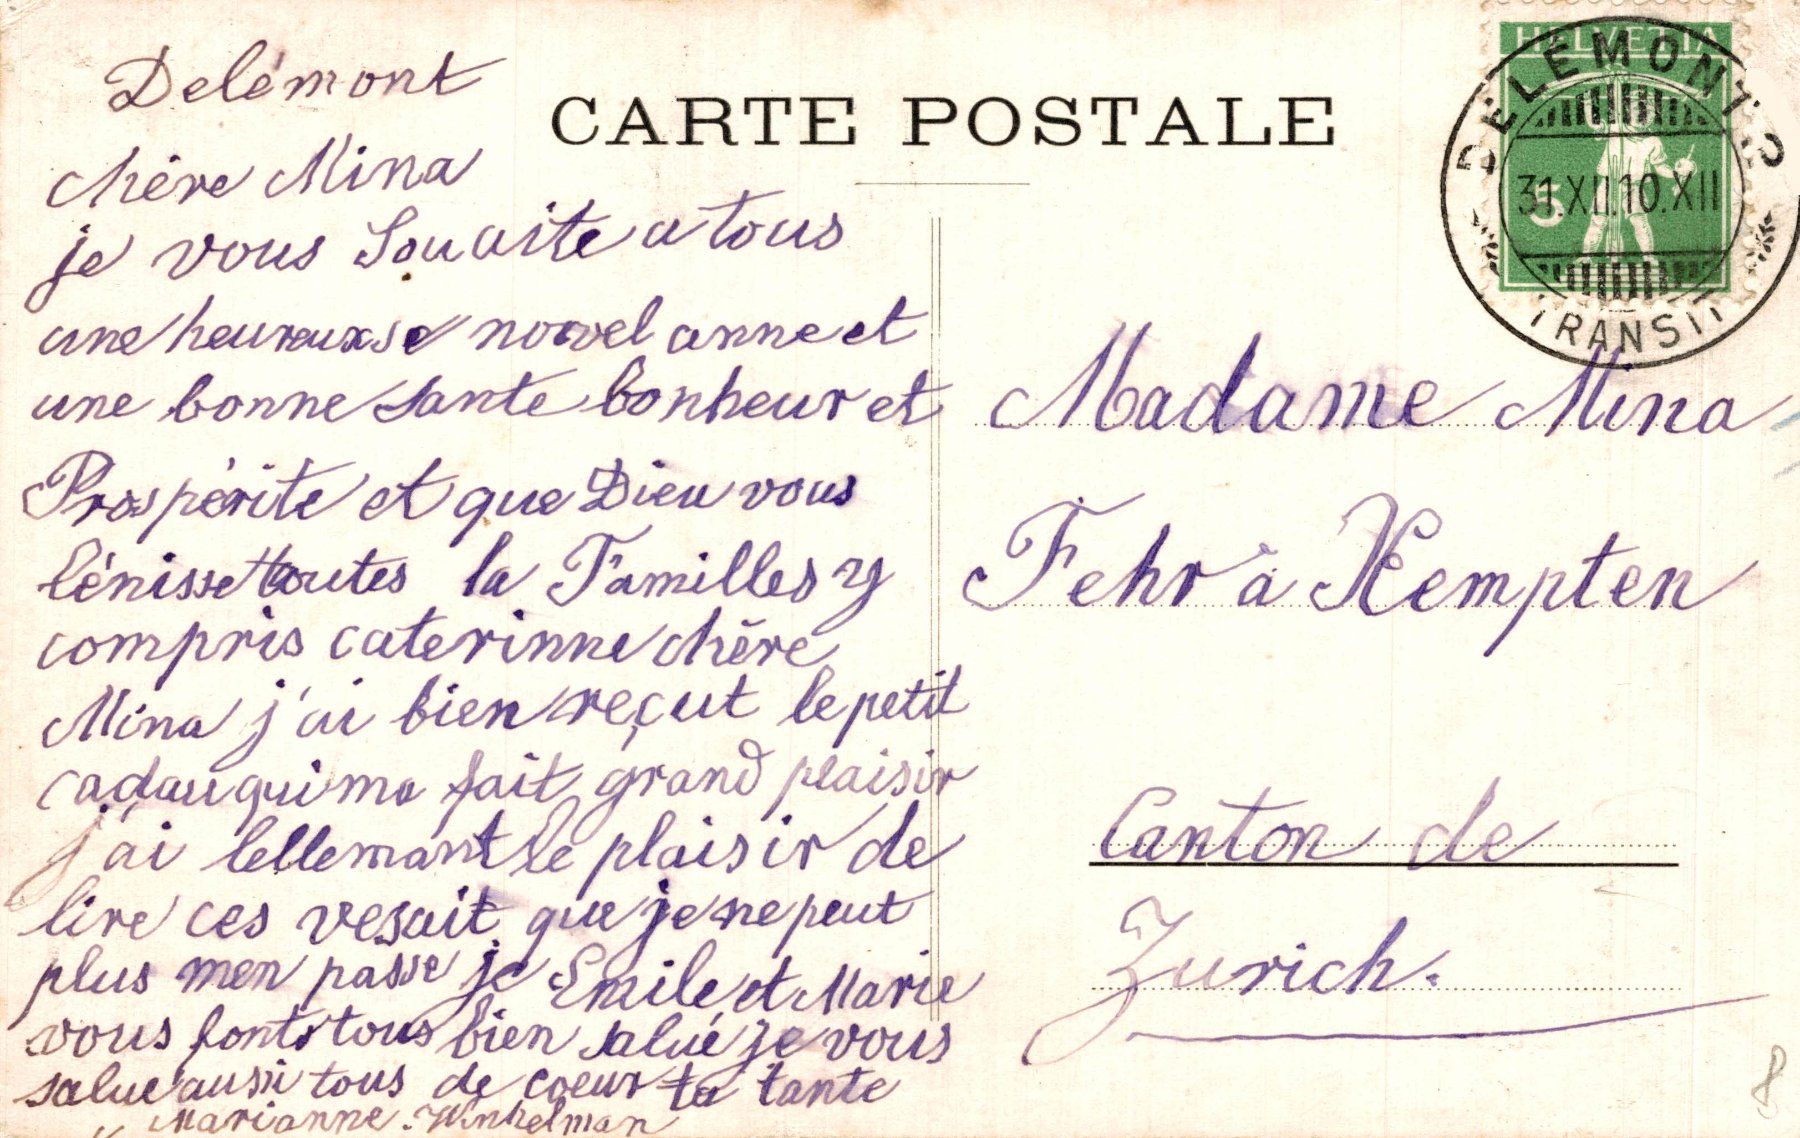 Delémont
chère Mina
je vous Souaite a tous
une heureuxse nouvel anne et
une bonne sante bonheur et
Prospérite et que Dieu vous
bénisse toutes la Familles y
compris caterinne chère
Mina j'ai bien reçut le petit
cadau qui ma fait grand plaisir
j'ai tellemant le plaisir de
lire ces que je ne peut
plus men passe je Emile et Marie
vous fonts tous bien salué je vous
salue aussi tous de coeur ta tante
Marianne Winkelman
CARTE POSTALE
HELVETIA
5
DELÉMONT
31.XII.10.XII
TRANSIT
Madame Mina
Fehr à Kempten
Canton de
Zurich.
8